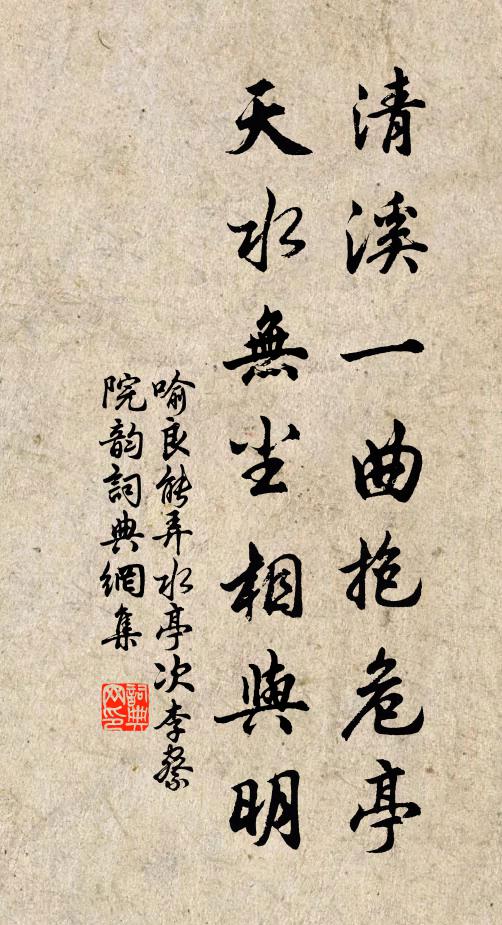 清溪一曲抱危亭
天水無尘相與明
喻良能弄水亭次李察
院韵詞典網集
詞典网印